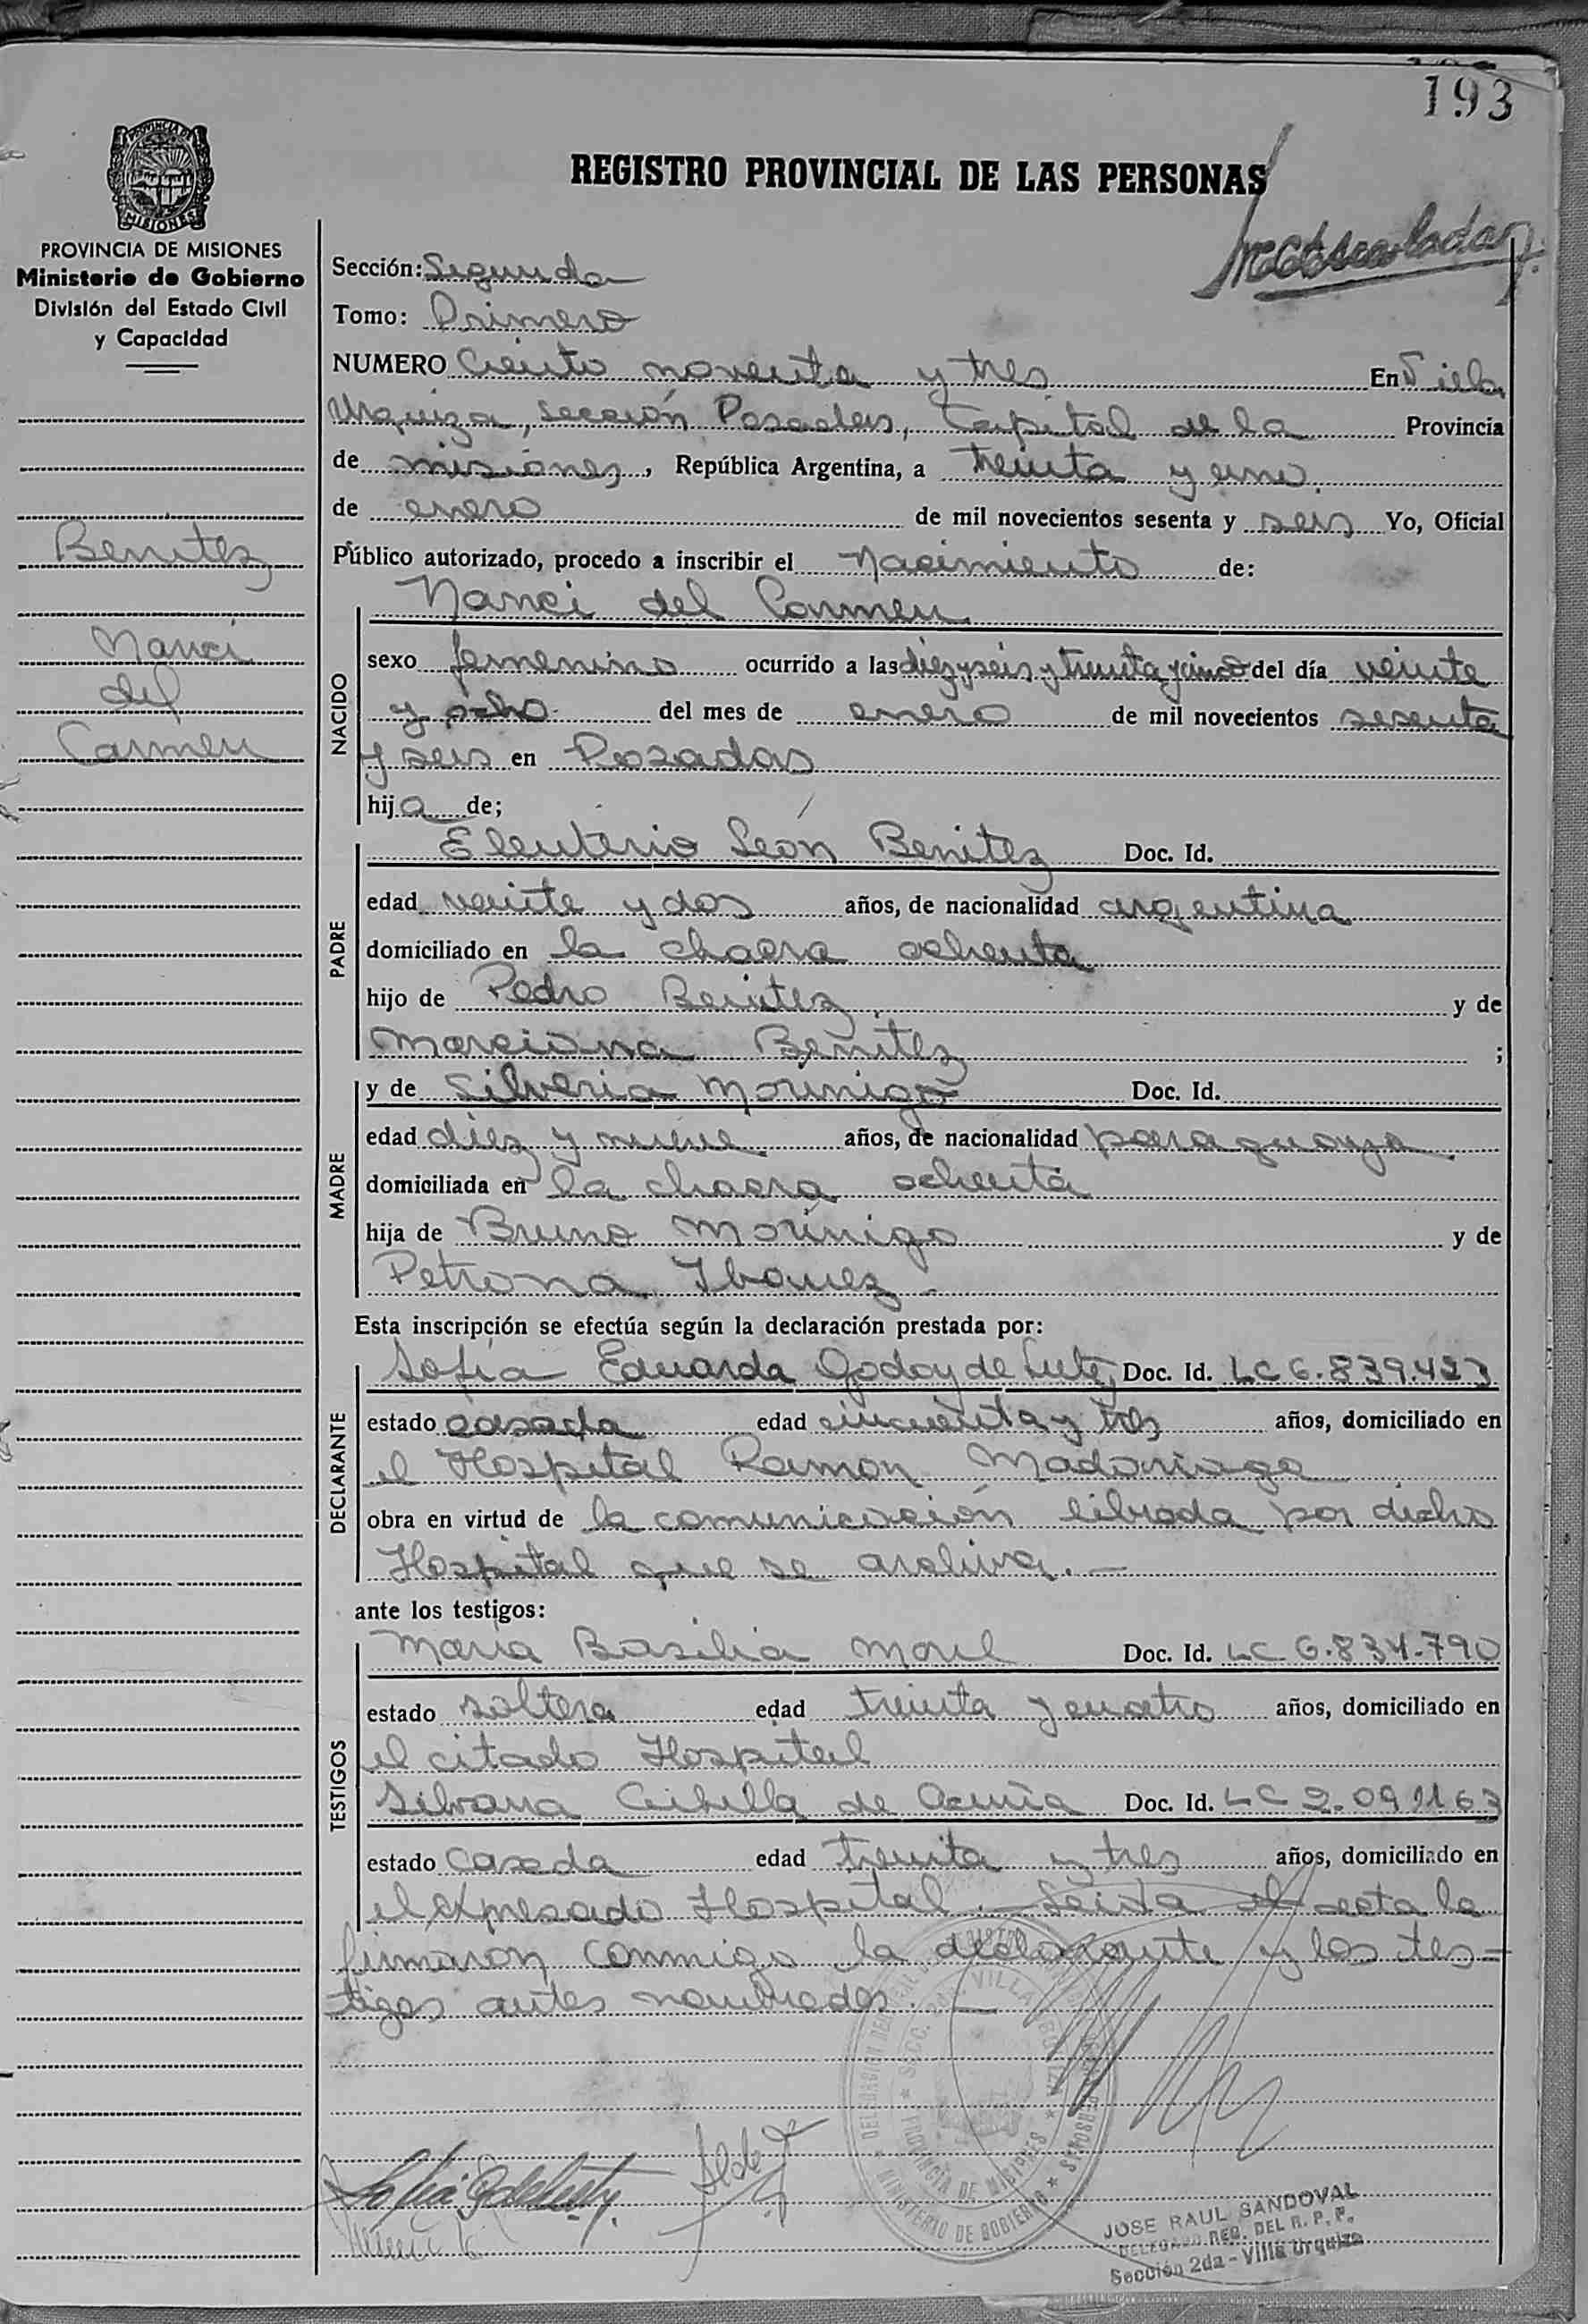 193
REGISTRO PROVINCIAL DE LAS PERSONAS
PROVINCIA DE
MISIONES
PROVINCIA DE MISIONES
Ministerio de Gobierno
División del Estado Civil
y Capacidad
Benitez
Nanci
del
Carmen
Sección: Segunda
Tomo: Primero
NUMERO Ciento noventa y tres En Villa
Urquiza, sección Posadas, Capital de la Provincia
de misiones, República Argentina, a treinta y uno
de enero de mil novecientos sesenta y seis Yo, Oficial
Público autorizado, procedo a inscribir el Nacimiento de:
Nanci del Carmen
NACIDO
sexo femenino ocurrido a las diez y seis y treinta y cinco del día veinte
y ocho del mes de enero de mil novecientos sesenta
y seis en Posadas
hija de;
PADRE
Eleuterio León Benitez Doc. Id.
edad veinte y dos años, de nacionalidad argentina
domiciliado en la chacra ochenta
hijo de Pedro Benitez y de
Marciana Benitez ;
MADRE
y de Silveria Morinigo Doc. Id.
edad diez y nueve años, de nacionalidad paraguaya
domiciliada en la chacra ochenta
hija de Bruno Morinigo y de
Petrona Ibanez
Esta inscripción se efectúa según la declaración prestada por:
DECLARANTE
Sofía Eduarda Godoy de Doc. Id. LC 6.839.423
estado casada edad cincuenta y tres años, domiciliado en
el Hospital Ramon Madariaga
obra en virtud de la comunicación librada por dicho
Hospital que se archiva.
ante los testigos:
TESTIGOS
Maria Basilia Doc. Id. LC 6.834.790
estado soltera edad treinta y cuatro años, domiciliado en
el citado Hospital
Silvana de Acuña Doc. Id. LC
estado casada edad treinta y tres años, domiciliado en
el expresado Hospital. Leida el acta la
firmaron conmigo la declarante y los tes-
tigos antes nombrados.
VILLA
PROVINCIA DE MISIONES
MINISTERIO DE GOBIERNO
JOSE RAUL SANDOVAL
DELEGADO REG. DEL R. P. P.
Sección 2da - Villa Urquiza